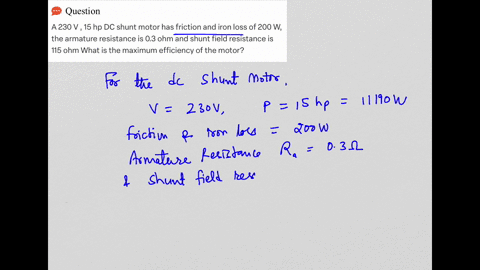 Question
A 230 V , 15 hp DC shunt motor has friction and iron loss of 200 W,
the armature resistance is 0.3 ohm and shunt field resistance is
115 ohm What is the maximum efficiency of the motor?
For the dc shunt motor,
V = 230V, P = 15 hp = 11190 W
friction & Iron loss = 200W
Armature Resistance Ra = 0.3 Ω
& shunt field res